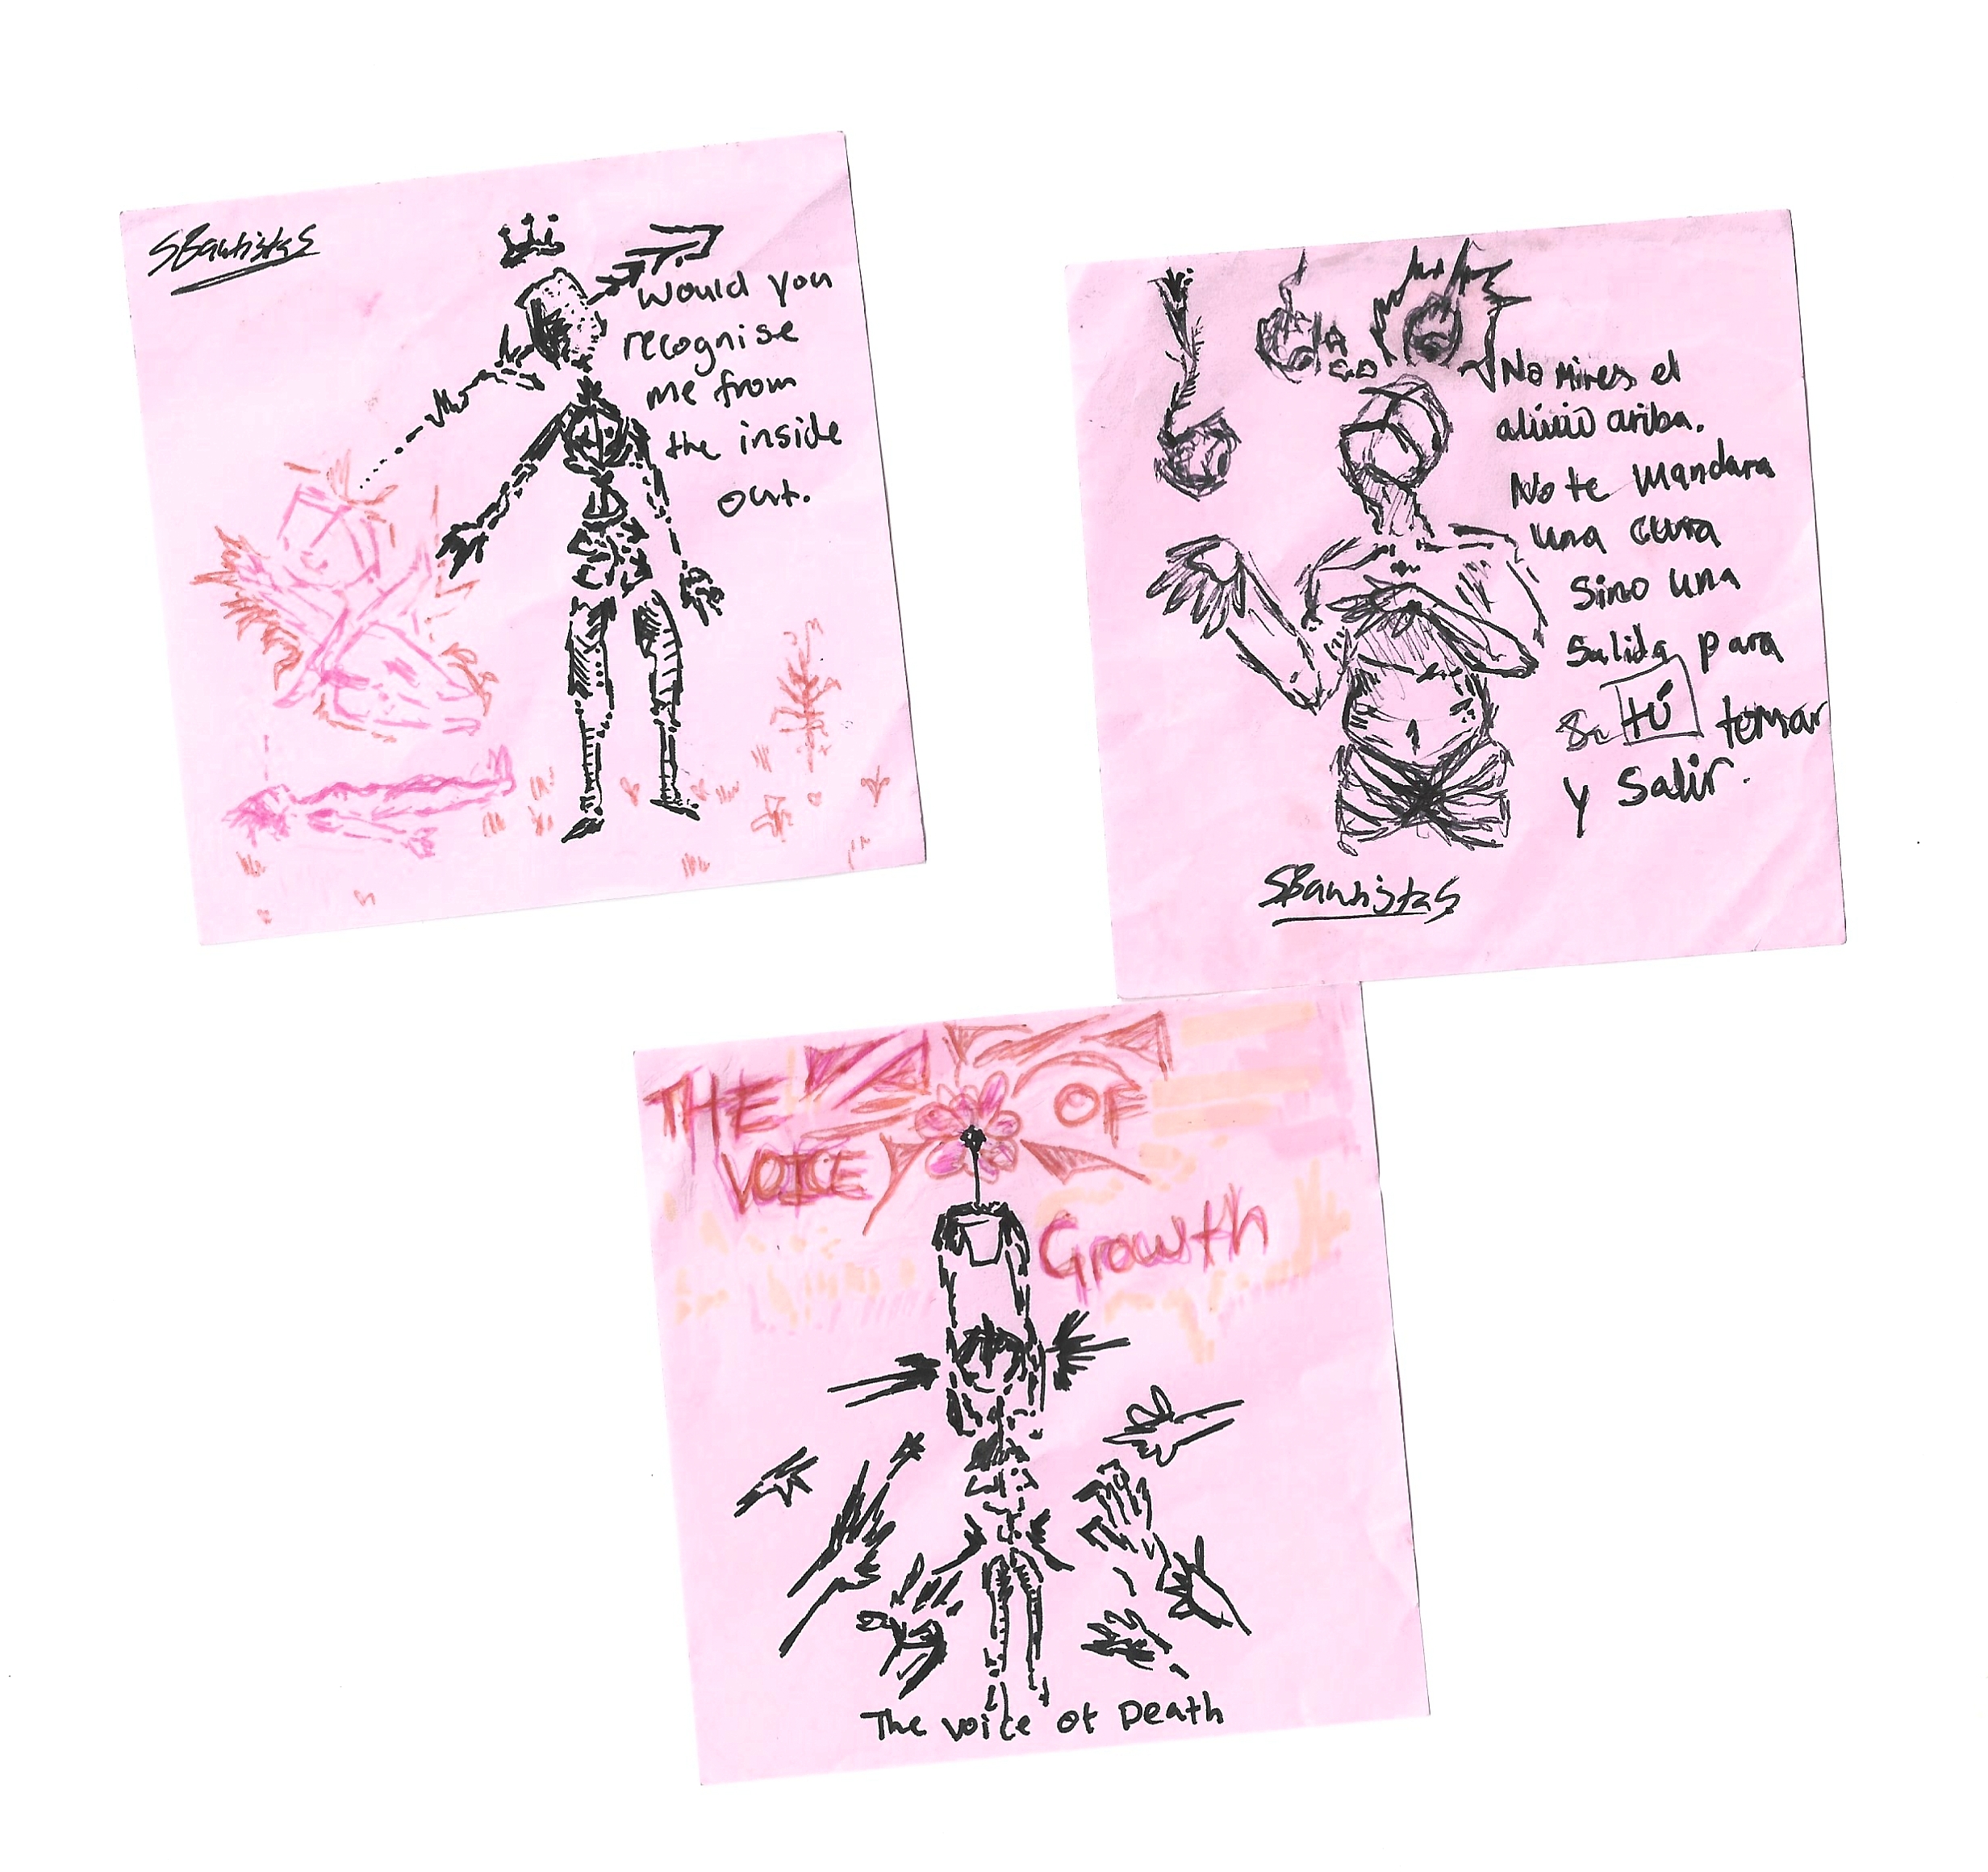 SBautistaS
would you
recognise
me from
the inside
out.
No mires el
aliuio ariba.
No te mandara
una cura
Sino una
Salida para
tú tomar
y salir.
SBautistaS
THE
VOICE
OF
Growth
The voice of Death